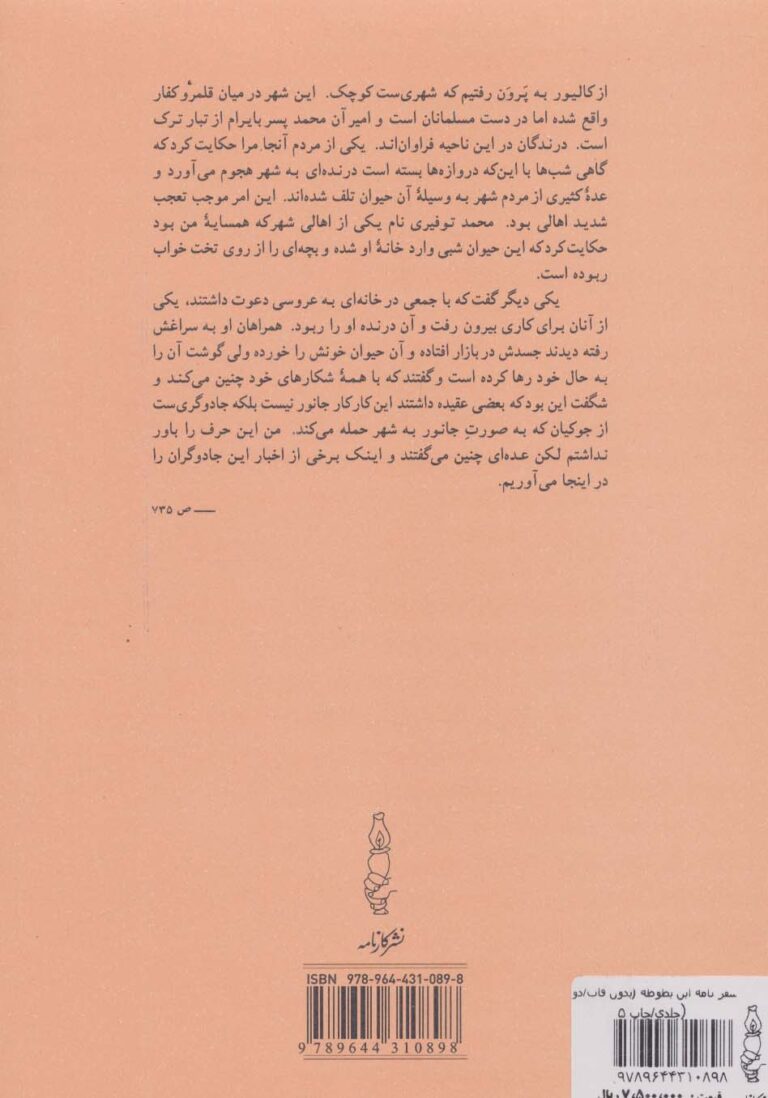 از کالیور به پَروَن رفتیم که شهری‌ست کوچک. این شهر در میان قلمرو کفار
واقع شده اما در دست مسلمانان است و امیر آن محمد پسر بایرام از تبار ترک
است. درندگان در این ناحیه فراوان‌اند. یکی از مردم آنجا مرا حکایت کرد که
گاهی شب‌ها با این‌که دروازه‌ها بسته است درنده‌ای به شهر هجوم می‌آورد و
عدهٔ کثیری از مردم شهر به وسیلهٔ آن حیوان تلف شده‌اند. این امر موجب تعجب
شدید اهالی بود. محمد توفیری نام یکی از اهالی شهر که همسایهٔ من بود
حکایت کرد که این حیوان شبی وارد خانهٔ او شده و بچه‌ای را از روی تخت خواب
ربوده است.
یکی دیگر گفت که با جمعی در خانه‌ای به عروسی دعوت داشتند، یکی
از آنان برای کاری بیرون رفت و آن درنده او را ربود. همراهان او به سراغش
رفته دیدند جسدش در بازار افتاده و آن حیوان خونش را خورده ولی گوشت آن را
به حال خود رها کرده است و گفتند که با همهٔ شکارهای خود چنین می‌کند و
شگفت این بود که بعضی عقیده داشتند این کار کار جانور نیست بلکه جادوگری‌ست
از جوکیان که به صورتِ جانور به شهر حمله می‌کند. من این حرف را باور
نداشتم لکن عده‌ای چنین می‌گفتند و اینک برخی از اخبار این جادوگران را
در اینجا می‌آوریم.
— ص ۷۳۵
نشر کارنامه
ISBN 978-964-431-089-8
9 789644 310898
سفر نامه ابن بطوطه (بدون قاب/دو
جلدی/چاپ ۵)
۹۷۸۹۶۴۴۳۱۰۸۹۸
قیمت: ۷,۵۰۰,۰۰۰ ریال